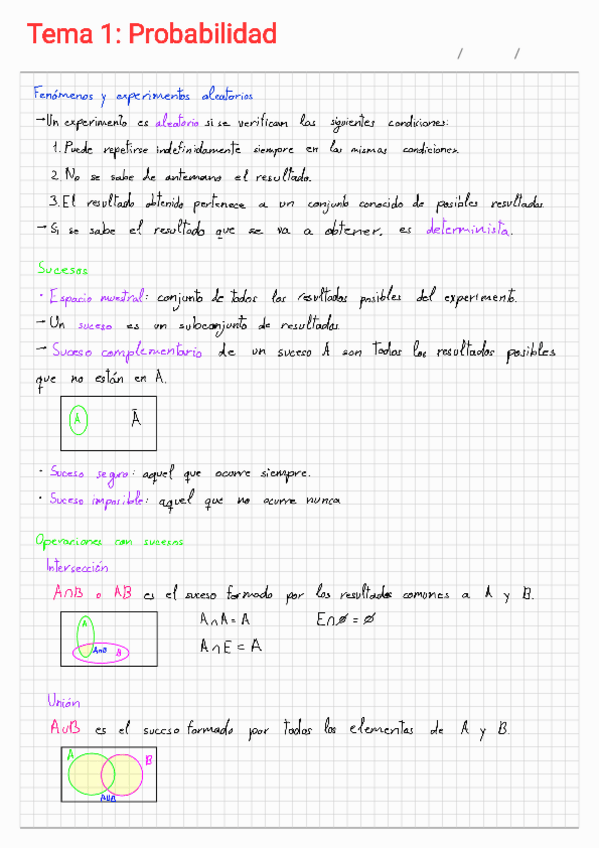 Tema 1: Probabilidad
/ /
Fenómenos y experimentos aleatorios
→Un experimento es aleatorio si se verifican las siguientes condiciones:
1. Puede repetirse indefinidamente siempre en las mismas condiciones.
2. No se sabe de antemano el resultado.
3. El resultado obtenido pertenece a un conjunto conocido de posibles resultados
→Si se sabe el resultado que se va a obtener, es determinista.
Sucesos
· Espacio muestral: conjunto de todos los resultados posibles del experimento.
→ Un suceso es un subconjunto de resultados
→ Suceso complementario de un suceso A son todos los resultados posibles
que no están en A.
A Ā
· Suceso seguro: aquel que ocurre siempre.
· Suceso imposible: aquel que no ocurre nunca
Operaciones con sucesos
Intersección
A∩B o AB es el suceso formado por los resultados comunes a A y B.
A A∩A = A E∩∅ = ∅
A∩B B A∩E = A
Unión
A∪B es el suceso formado por todos los elementos de A y B.
A B
A∪B